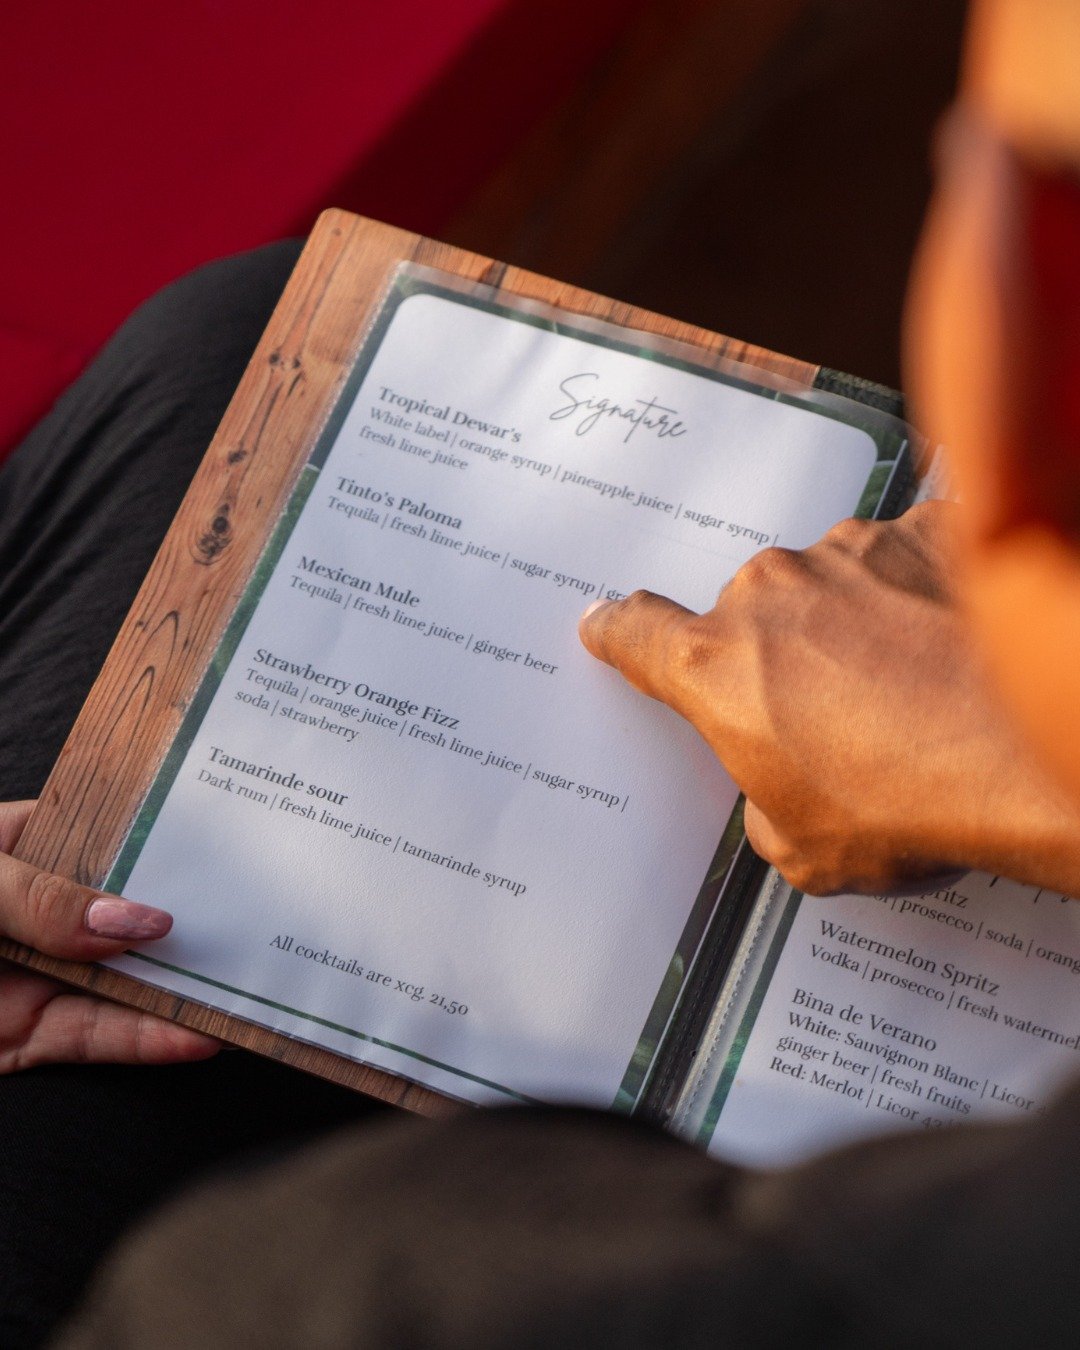 Signature
Tropical Dewar's
White label | orange syrup | pineapple juice | sugar syrup |
fresh lime juice
Tinto's Paloma
Tequila | fresh lime juice | sugar syrup |
Mexican Mule
Tequila | fresh lime juice | ginger beer
Strawberry Orange Fizz
Tequila | orange juice | fresh lime juice | sugar syrup |
soda | strawberry
Tamarinde sour
Dark rum | fresh lime juice | tamarinde syrup
All cocktails are xcg. 21,50
| prosecco | soda |
Watermelon Spritz
Vodka | prosecco | fresh
Bina de Verano
White: Sauvignon Blanc | Licor
ginger beer | fresh fruits
Red: Merlot | Licor 43